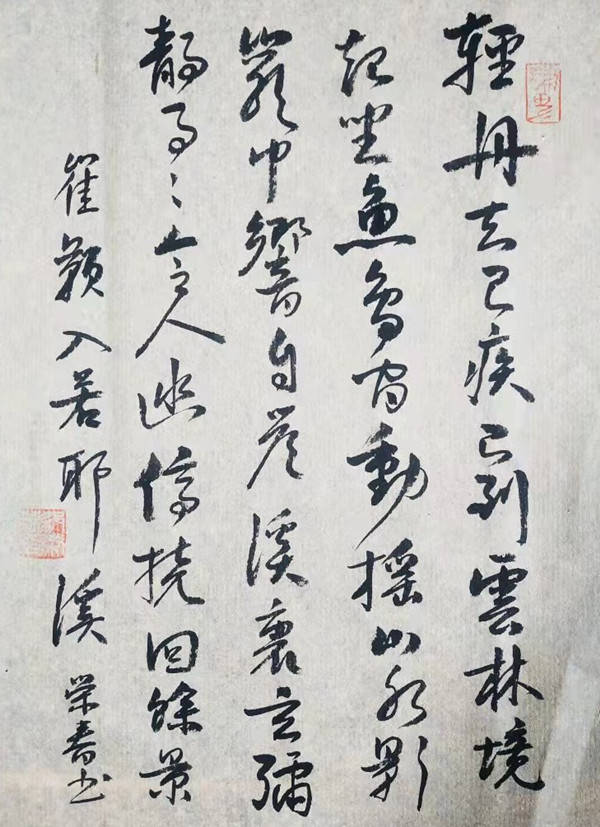 輕舟去已疾已到雲林境
起坐魚鳥間動搖山水影
巖中響自答溪裏言彌
靜事々令人幽停橈向餘景
崔顥入若耶溪 荣春书